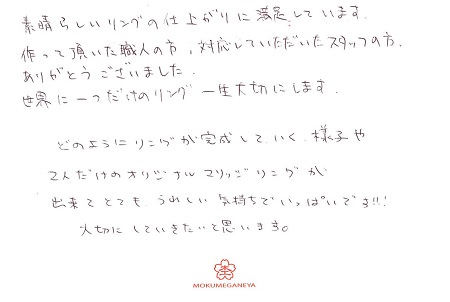 素晴らしいリングの仕上がりに満足しています.
作って頂いた職人の方、対応していただいたスタッフの方.
ありがとうございました.
世界に一つだけのリング一生大切にします.
どのようにリングが完成していく様子や
2人だけのオリジナルマリッジリングが
出来てとても、うれしい気持ちでいっぱいです!!!
大切にしていきたいと思います。
MOKUMEGANEYA